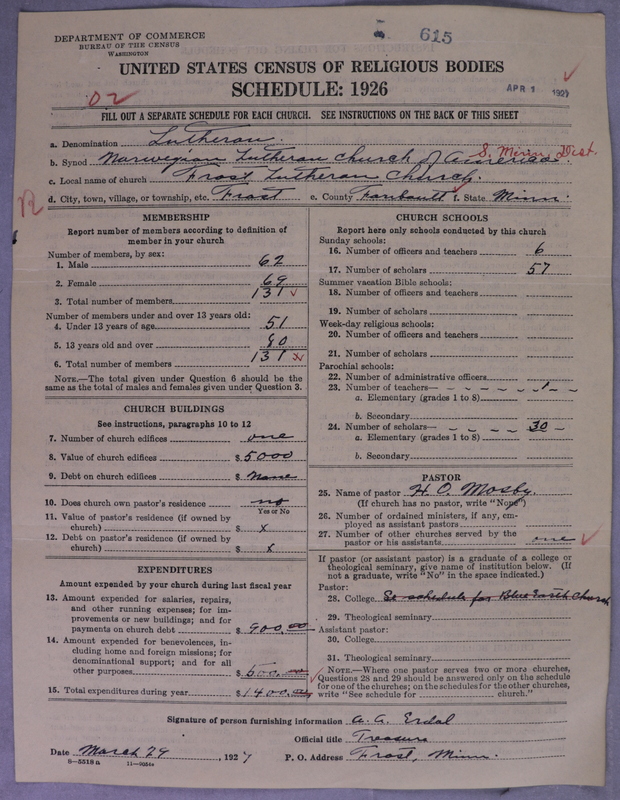 615
DEPARTMENT OF COMMERCE
BUREAU OF THE CENSUS
WASHINGTON
UNITED STATES CENSUS OF RELIGIOUS BODIES
SCHEDULE: 1926
APR 1 1927
02
FILL OUT A SEPARATE SCHEDULE FOR EACH CHURCH. SEE INSTRUCTIONS ON THE BACK OF THIS SHEET
a. Denomination Lutheran.
b. Synod Norwegian Lutheran Church of America. S. Minn. Dist.
c. Local name of church Frost Lutheran Church.
d. City, town, village, or township, etc. Frost e. County Faribault f. State Minn.
MEMBERSHIP
Report number of members according to definition of
member in your church
Number of members, by sex:
1. Male 62
2. Female 69
3. Total number of members 131
Number of members under and over 13 years old:
4. Under 13 years of age 51
5. 13 years old and over 80
6. Total number of members 131
NOTE.—The total given under Question 6 should be
same as the total of males and females given under Question 3.
CHURCH BUILDINGS
See instructions, paragraphs 10 to 12
7. Number of church edifices one
8. Value of church edifices $5000
9. Debt on church edifices $ None
10. Does church own pastor's residence no
Yes or No
11. Value of pastor's residence (if owned by
church) $ x
12. Debt on pastor's residence (if owned by
church) $ x
EXPENDITURES
Amount expended by your church during last fiscal year
13. Amount expended for salaries, repairs,
and other running expenses; for im-
provements or new buildings; and for
payments on church debt $ 900.00
14. Amount expended for benevolences, in-
cluding home and foreign missions; for
denominational support; and for all
other purposes $ 500.00
15. Total expenditures during year $ 1400.00
CHURCH SCHOOLS
Report here only schools conducted by this church
Sunday schools:
16. Number of officers and teachers 6
17. Number of scholars 57
Summer vacation Bible schools:
18. Number of officers and teachers
19. Number of scholars
Week-day religious schools:
20. Number of officers and teachers
21. Number of scholars
Parochial schools:
22. Number of administrative officers
23. Number of teachers— 1
a. Elementary (grades 1 to 8)
b. Secondary
24. Number of scholars— 30
a. Elementary (grades 1 to 8)
b. Secondary
PASTOR
25. Name of pastor H. O. Mosby.
(If church has no pastor, write "None")
26. Number of ordained ministers, if any, em-
ployed as assistant pastors
27. Number of other churches served by the
pastor or his assistants one
If pastor (or assistant pastor) is a graduate of a college or
theological seminary, give name of institution below. (If
not a graduate, write "No" in the space indicated.)
Pastor:
28. College Se schedule for Blue Earth Church
29. Theological seminary
Assistant pastor:
30. College
31. Theological seminary
NOTE.—Where one pastor serves two or more churches,
Questions 28 and 29 should be answered only on the schedule
for one of the churches; on the schedules for the other churches,
write "See schedule for church."
Signature of person furnishing information A. A. Erdal
Official title Treasurer
Date March 29, 1927 P. O. Address Frost, Minn.
8—5518 a 11—9054